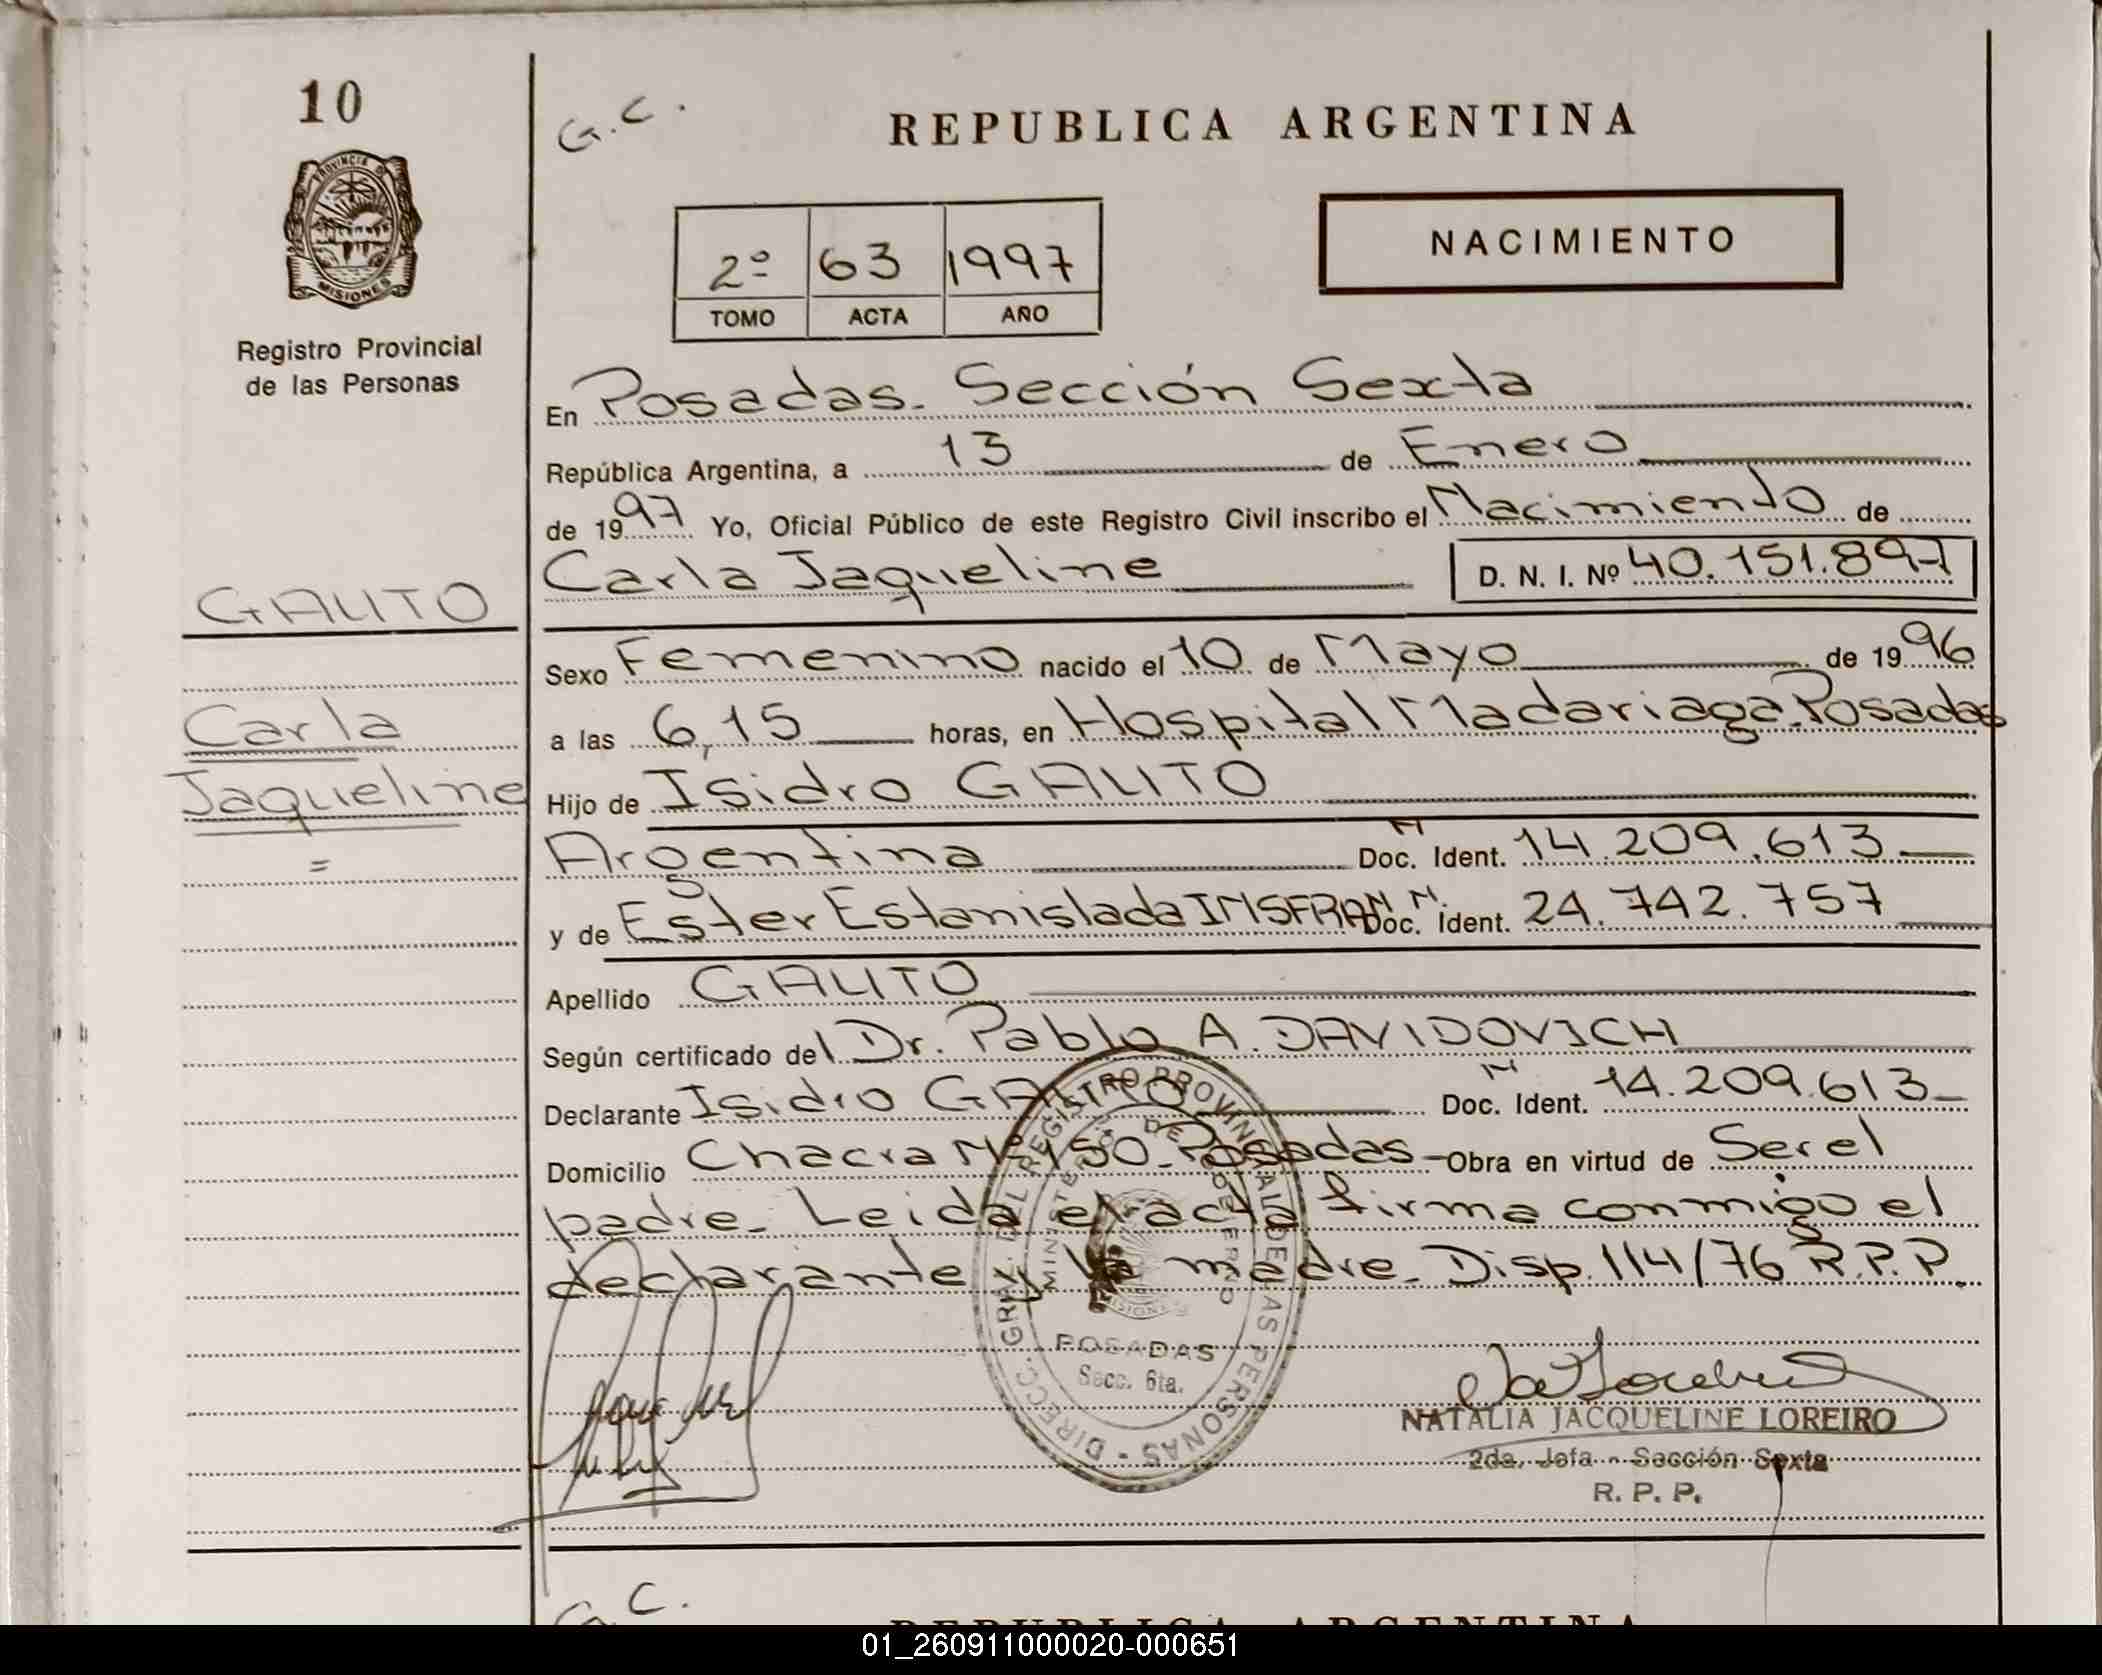 10
G.C.
REPUBLICA ARGENTINA
PROVINCIA DE
MISIONES
2º 63 1997
TOMO ACTA AÑO
NACIMIENTO
Registro Provincial
de las Personas
En Posadas. Sección Sexta
República Argentina, a 13 de Enero
de 1997 Yo, Oficial Público de este Registro Civil inscribo el Nacimiento de
GAUTO
Carla Jaqueline D. N. I. Nº 40.151.897
Sexo Femenino nacido el 10 de Mayo de 1996
Carla
a las 6,15 horas, en Hospital Madariaga. Posadas
Jaqueline
Hijo de Isidro GAUTO
=
Argentina M Doc. Ident. 14.209.613
y de Ester Estanislada INSFRAN M. Doc. Ident. 24.742.757
Apellido GAUTO
Según certificado del Dr. Pablo A. DAVIDOVICH
Declarante Isidro GAUTO M Doc. Ident. 14.209.613
Domicilio Chacra Nº 150. Posadas - Obra en virtud de Ser el
padre. Leida el acta firma conmigo el
declarante y la madre. Disp. 114/76 R.P.P.
DIRECC. GRAL. DEL REGISTRO PROVINCIAL DE LAS PERSONAS
MINISTERIO DE GOBIERNO
MISIONES
POSADAS
Secc. 6ta.
NATALIA JACQUELINE LOREIRO
2da. Jefa - Sección Sexta
R. P. P.
G.C.
REPUBLICA ARGENTINA
01_260911000020-000651